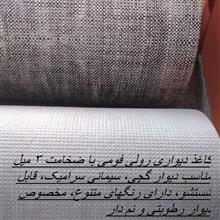 کاغذ دیواری رولی فومی با ضخامت ۳ میل
مناسب دیوار گچی، سیمانی سرامیک، قابل
شستشو، دارای رنگهای متنوع، مخصوص
دیوار رطوبتی و نم دار